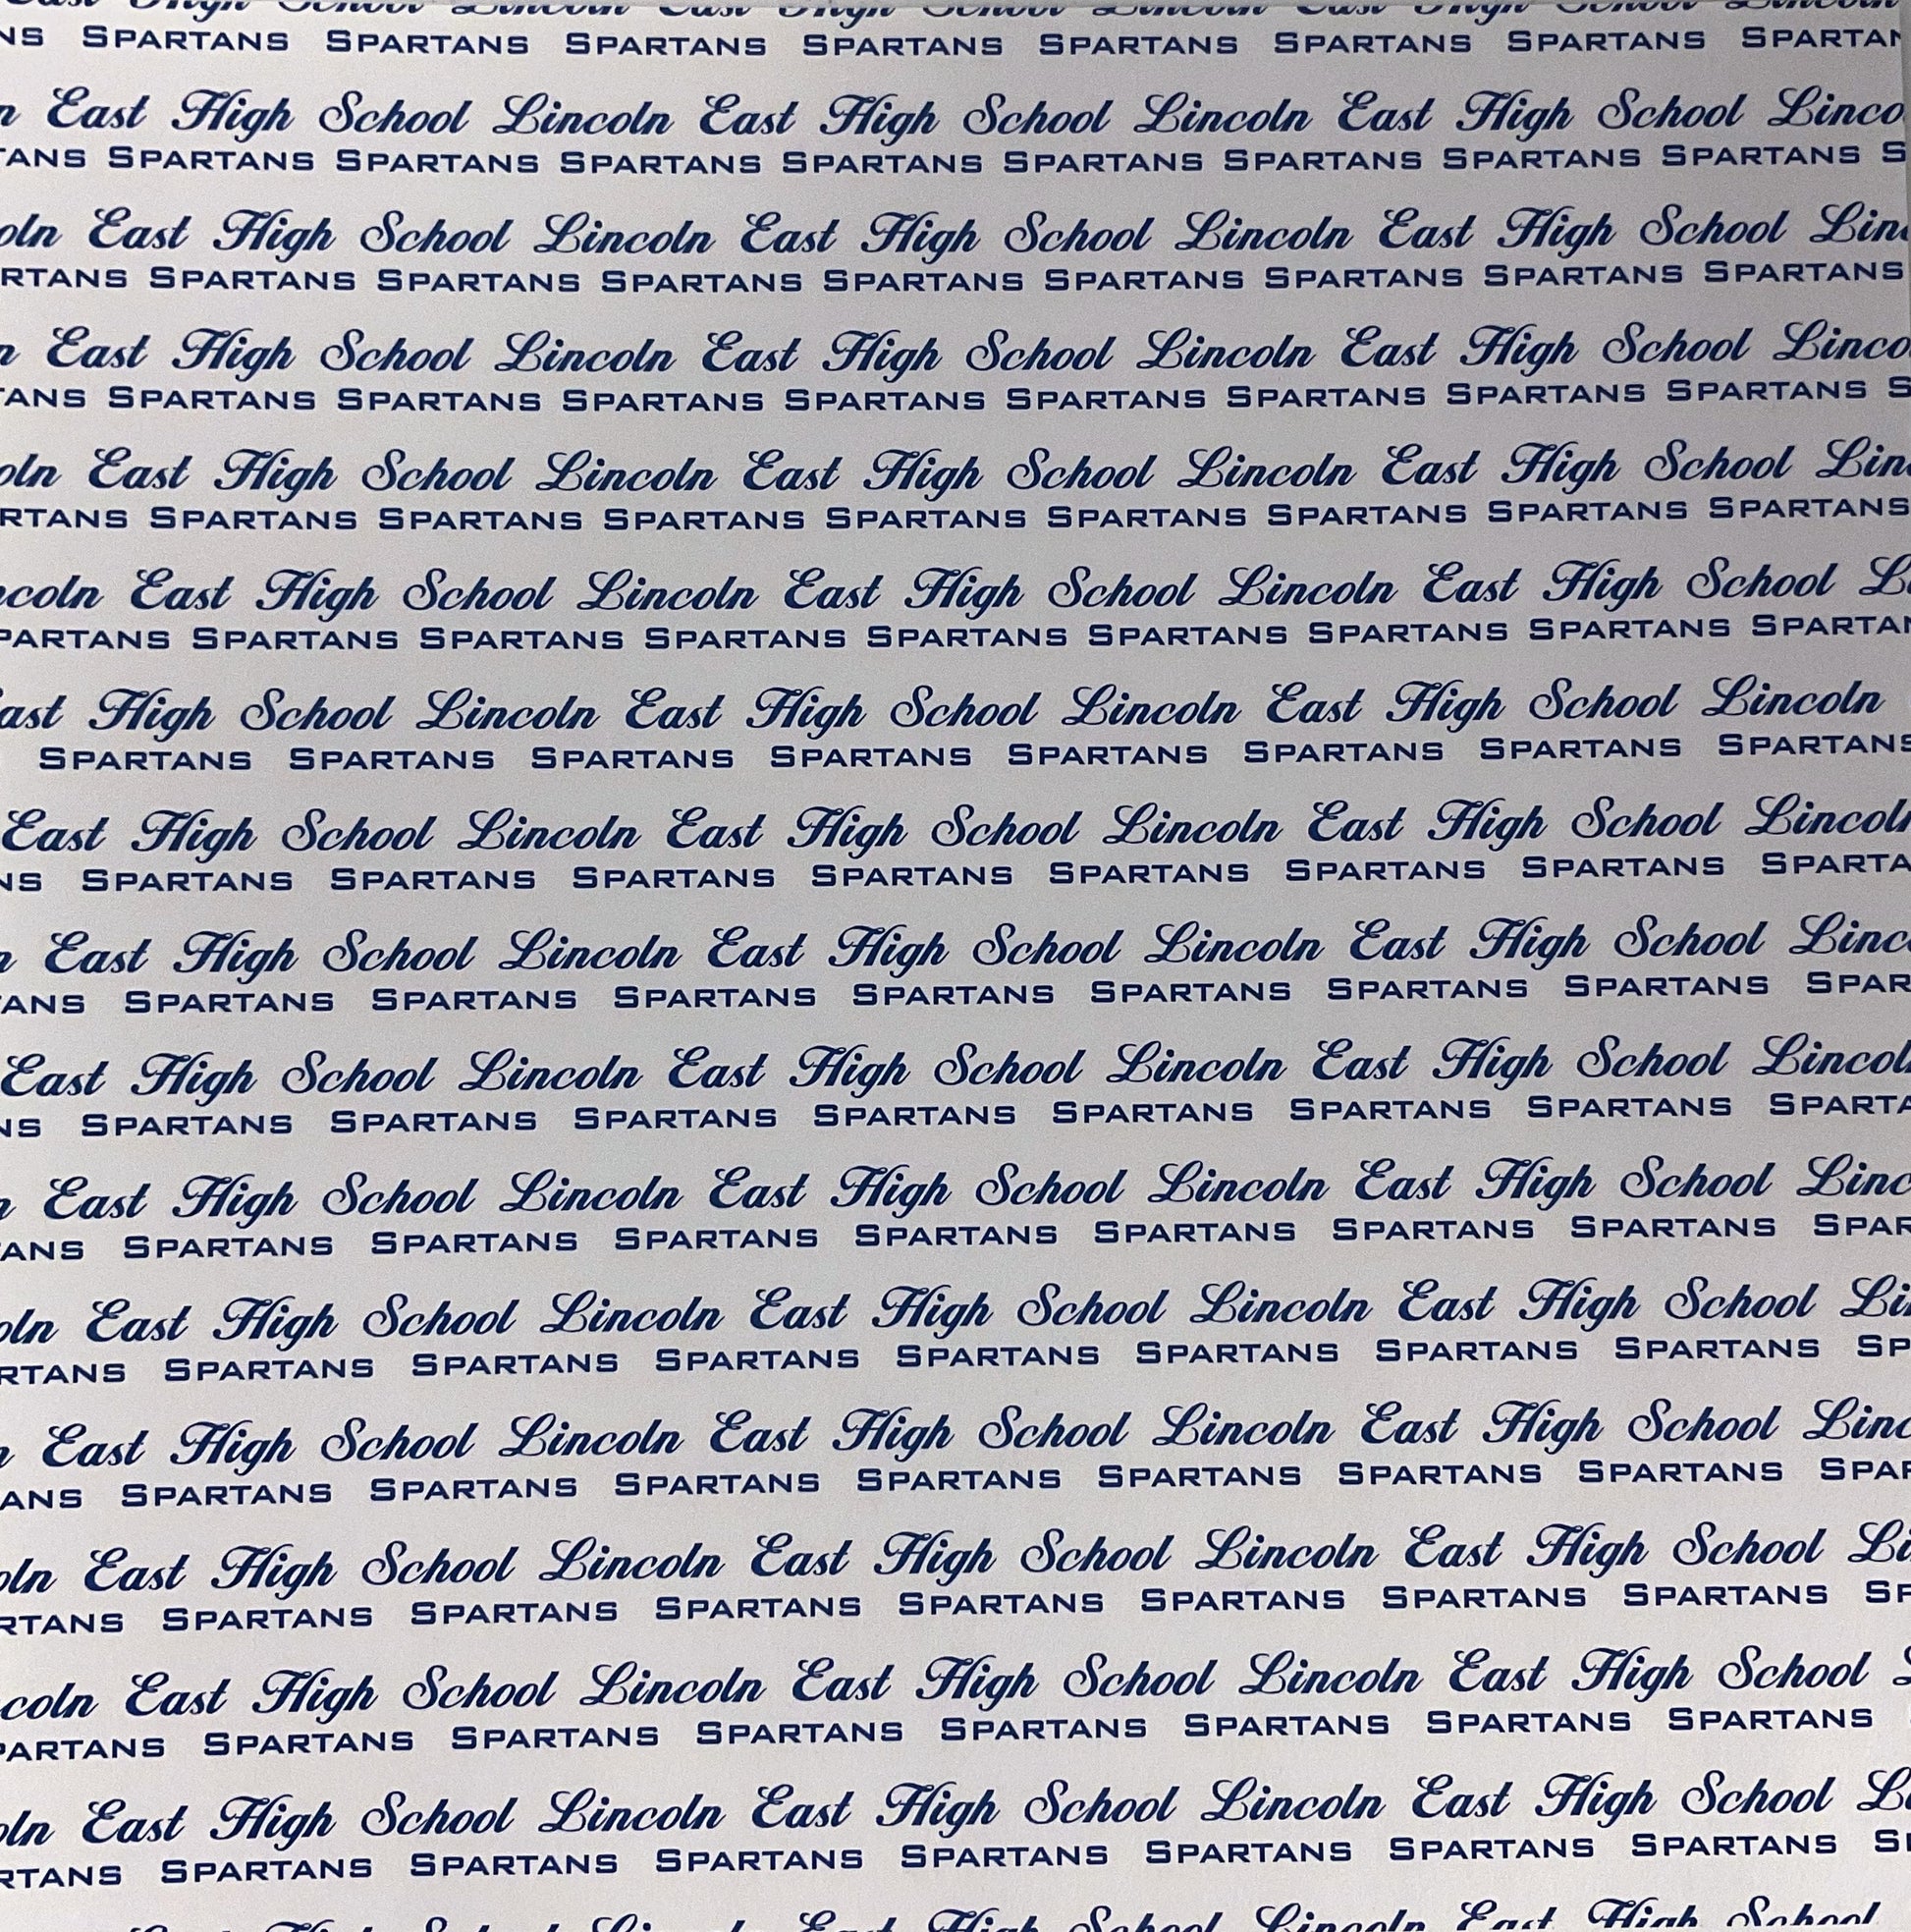 East High School Lincoln East High School Lincoln East High School Lincoln
SPARTANS SPARTANS SPARTANS SPARTANS SPARTANS SPARTANS SPARTANS
East High School Lincoln East High School Lincoln East High School
SPARTANS SPARTANS SPARTANS SPARTANS SPARTANS SPARTANS SPARTANS SPARTANS
East High School Lincoln East High School Lincoln East High School
SPARTANS SPARTANS SPARTANS SPARTANS SPARTANS SPARTANS SPARTANS SPARTANS
East High School Lincoln East High School Lincoln East High School
SPARTANS SPARTANS SPARTANS SPARTANS SPARTANS SPARTANS SPARTANS SPARTANS
East High School Lincoln East High School Lincoln East High School
SPARTANS SPARTANS SPARTANS SPARTANS SPARTANS SPARTANS SPARTANS SPARTANS
East High School Lincoln East High School Lincoln East High School
SPARTANS SPARTANS SPARTANS SPARTANS SPARTANS SPARTANS SPARTANS
High School Lincoln East High School Lincoln East High School Lincoln
SPARTANS SPARTANS SPARTANS SPARTANS SPARTANS SPARTANS SPARTANS SPARTANS
East High School Lincoln East High School Lincoln East High School Lincoln
SPARTANS SPARTANS SPARTANS SPARTANS SPARTANS SPARTANS SPARTANS
East High School Lincoln East High School Lincoln East High School
SPARTANS SPARTANS SPARTANS SPARTANS SPARTANS SPARTANS SPARTANS
East High School Lincoln East High School Lincoln East High School
SPARTANS SPARTANS SPARTANS SPARTANS SPARTANS SPARTANS SPARTANS
East High School Lincoln East High School Lincoln East High School
SPARTANS SPARTANS SPARTANS SPARTANS SPARTANS SPARTANS SPARTANS
East High School Lincoln East High School Lincoln East High School
SPARTANS SPARTANS SPARTANS SPARTANS SPARTANS SPARTANS SPARTANS
East High School Lincoln East High School Lincoln East High School
SPARTANS SPARTANS SPARTANS SPARTANS SPARTANS SPARTANS SPARTANS
East High School Lincoln East High School Lincoln East High School
SPARTANS SPARTANS SPARTANS SPARTANS SPARTANS SPARTANS SPARTANS
East High School Lincoln East High School Lincoln East High School
SPARTANS SPARTANS SPARTANS SPARTANS SPARTANS SPARTANS SPARTANS
East High School Lincoln East High School Lincoln East High School
SPARTANS SPARTANS SPARTANS SPARTANS SPARTANS SPARTANS SPARTANS
East High School Lincoln East High School Lincoln East High School